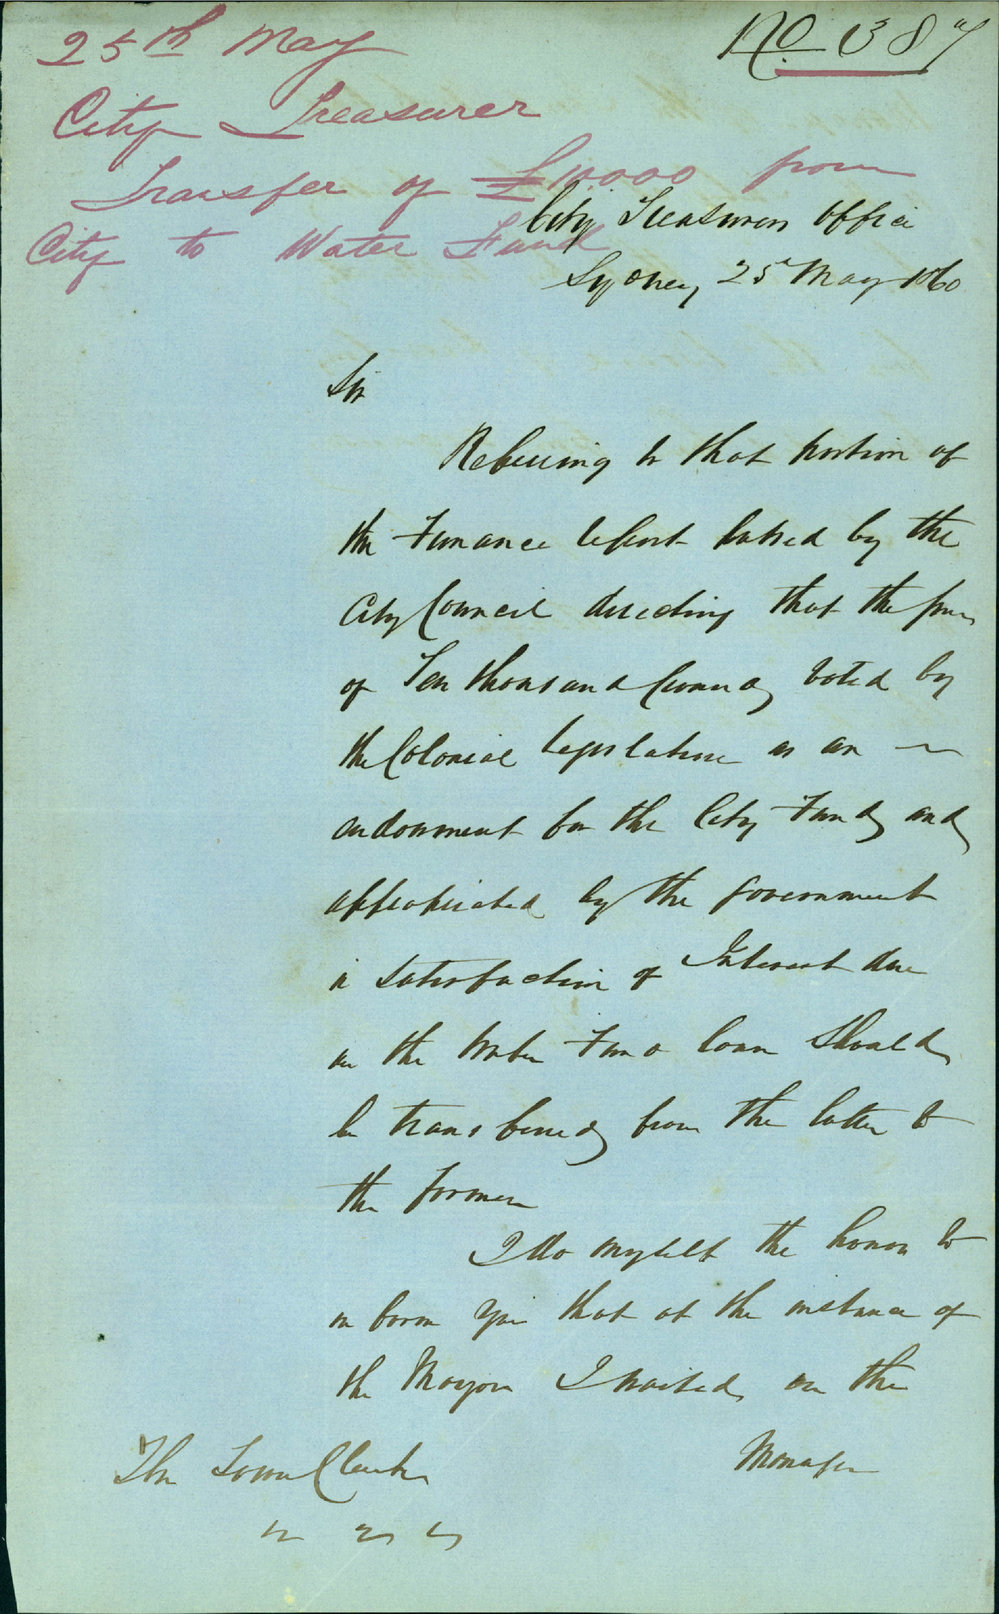 25th May
No 387
City Treasurer
Transfer of £10.000 from
City to Water Fund
City Treasurers Office
Sydney 25th May 1860
Sir
Referring to that portion of
the Finance report passed by the
City Council directing that the sum
of Ten thousand pounds voted by
the Colonial Legislature as an
endowment for the City Fund and
appropriated by the Government
in satisfaction of Interest due
on the Water Fund loan should
be transferred from the latter to
the former
I do myself the honor to
inform you that at the instance of
the Mayor I waited on the
Manager
The Town Clerk